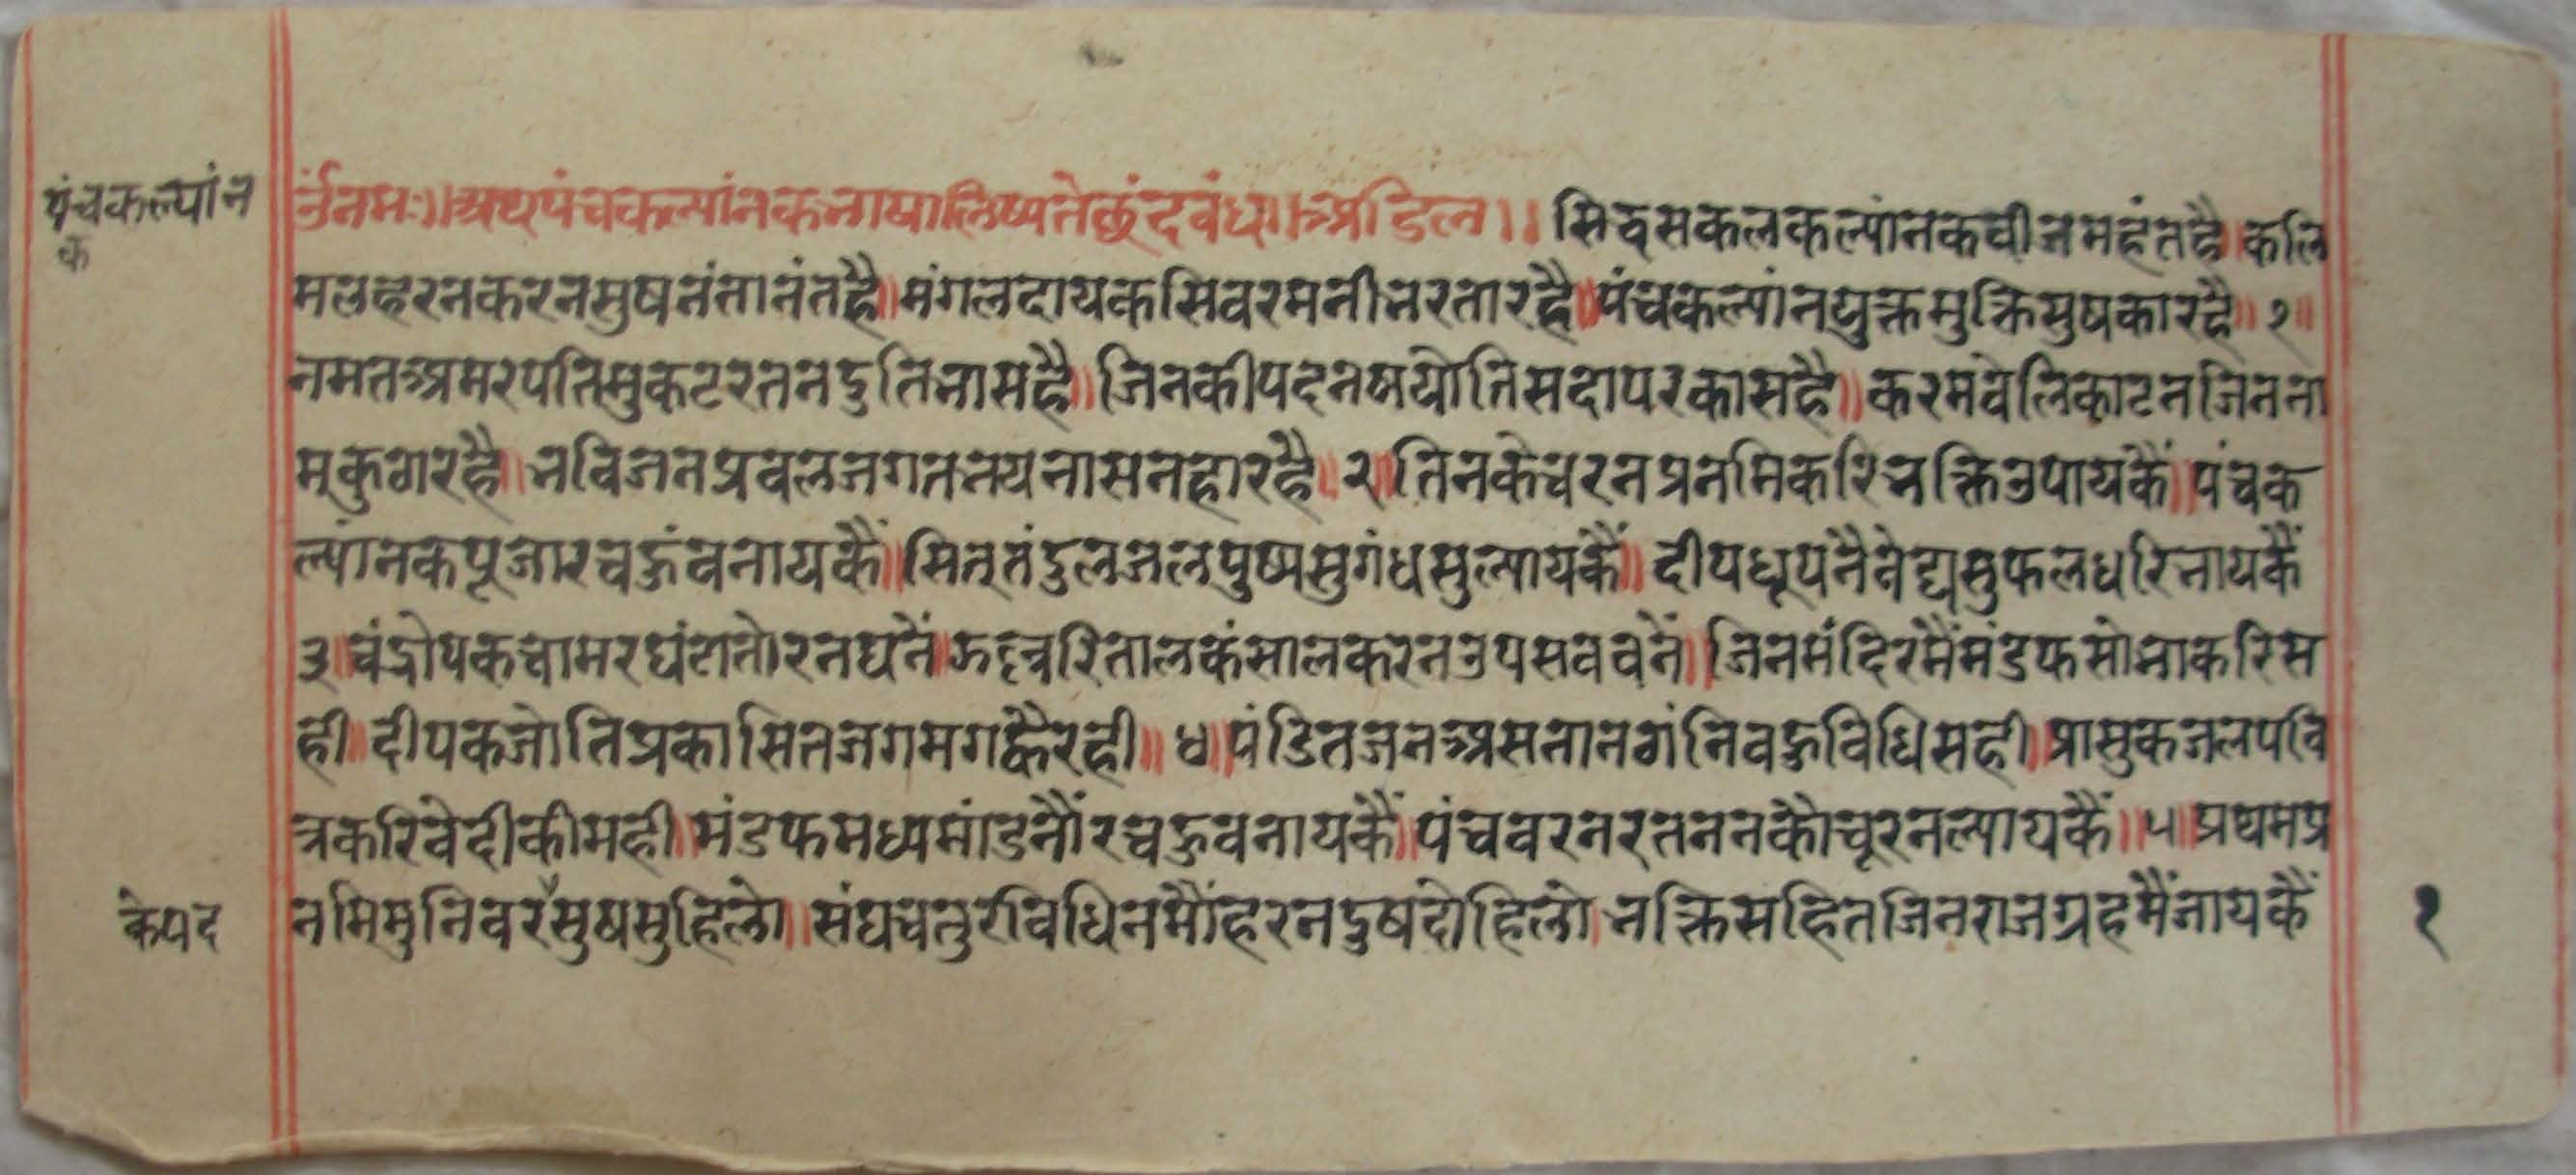 पंचकल्यांन
क
ॐनमः॥अथपंचकल्यांनकभाषालिष्यतेछंदबंध॥अडिल॥ सिद्धसकलकल्यांनकवीजमहंतहै॥कलि
मलहरनकरनसुषनंतानंतहै॥मंगलदायकसिवरमनीभरतारहै॥पंचकल्यांनयुक्तमुक्तिसुषकारहै॥१॥
नमतअमरपतिमुकटरतनदुतिभासहै॥जिनकीपदनखयोतिसदापरकासहै॥करमवेलिकाटनजिनना
मकुठारहै॥भविजनप्रवलजगतभयनासनहारहै॥२॥तिनकेचरनप्रनमिकरिभक्तिउपायकैं॥पंचक
ल्यांनकपूजारचऊंवनायकैं॥सिततंदुलजलपुष्पसुगंधसुल्यायकैं॥दीपधूपनैवेद्यसुफलधरिभायकैं
३॥चंद्रोपकचामरघंटातोरनघनें॥झल्लरितालकंसालकरनउपसववनें॥जिनमंदिरमैंमंडफसोभाकरिस
ही॥दीपकजोतिप्रकासितजगमगह्वैरही॥४॥पंडितजनअसनानठांनिवऊविधिसही॥प्रासुकजलपवि
त्रकरिवेदीकीमही॥मंडफमध्यमांडनौंरचऊवनायकैं॥पंचवरनरतननकौचूरनल्यायकैं॥५॥प्रथमप्र
नमिमुनिवरसुषसुहिलो॥संघचतुरविधिनमौंहरनदुषदोहिलो॥भक्तिसहितजिनराजग्रहमैंजायकैं
केपद
१